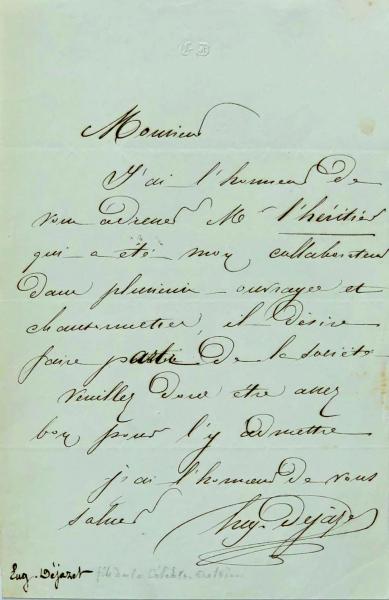 Monsieur
J'ai l'honneur de
vous adresser Mr l'héritier
qui a été mon collaborateur
dans plusieurs ouvrages et
chansonnettes, il désire
faire partie de la société
veuillez donc être assez
bon pour l'y admettre
j'ai l'honneur de vous
saluer Eug. Déjazet
Eug. Déjazet fils de la célèbre